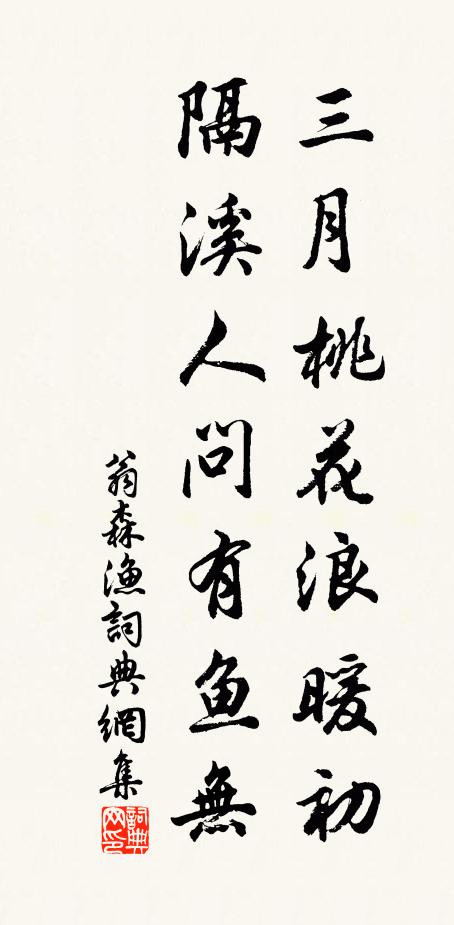 三月桃花浪暖初
隔溪人问有鱼無
翁森渔詞典網集
詞典网印